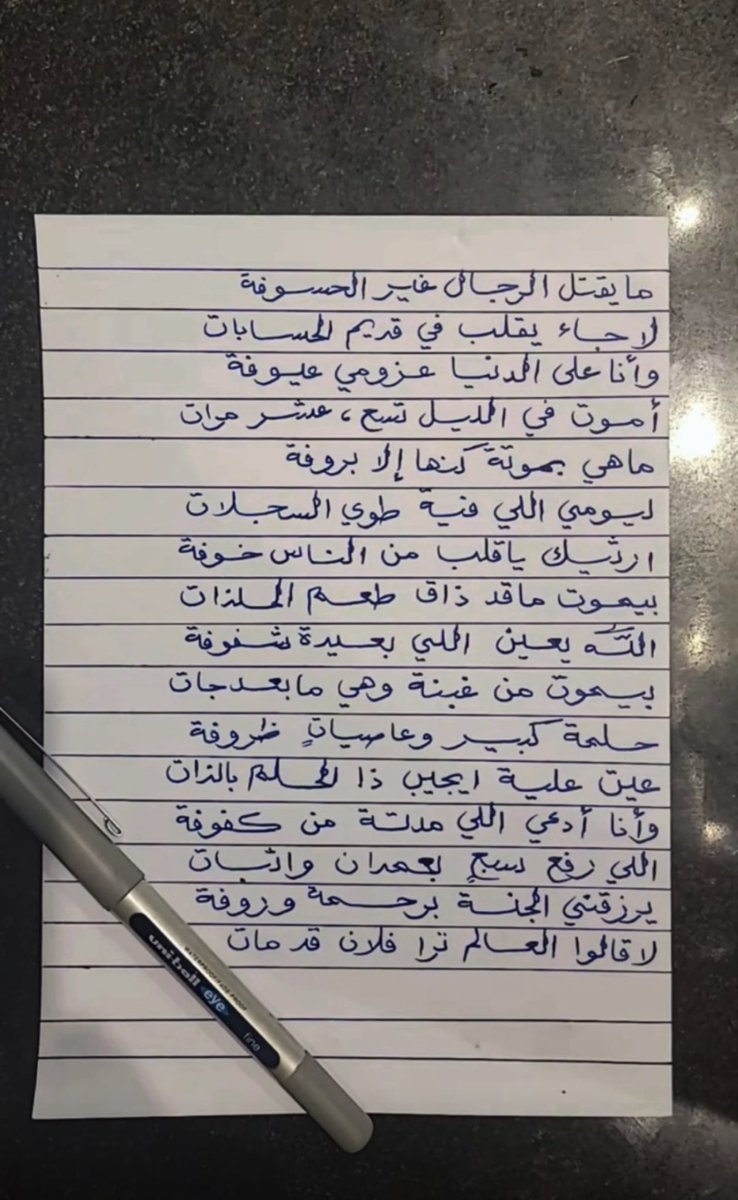 ما يقتل الرجال غير الحسوفة
لا جاء يقلب في قديم الحسابات
وأنا على الدنيا عزومي عيوفة
أموت في الليل تسع، عشر مرات
ماهي بموتة كنها إلا بروفة
ليومي اللي فنية طوي السجلات
ارثيك ياقلب من الناس خوفة
بيموت ماقد ذاق طعم الملذات
الله يعين اللي بعيدة شفوفة
بيموت من غبنة وهي مابعد جات
حلمة كبير وعاصياتٍ ظروفة
عين علية ايجيب ذا الحلم بالذات
وأنا أدعي اللي مدتة من كفوفة
اللي رفع سبعٍ بعمدان واثبات
يرزقني الجنة برحمة وروفة
لا قالوا العالم ترا فلان قد مات
uniball eye
WATERPROOF/FADE-PROOF
fine